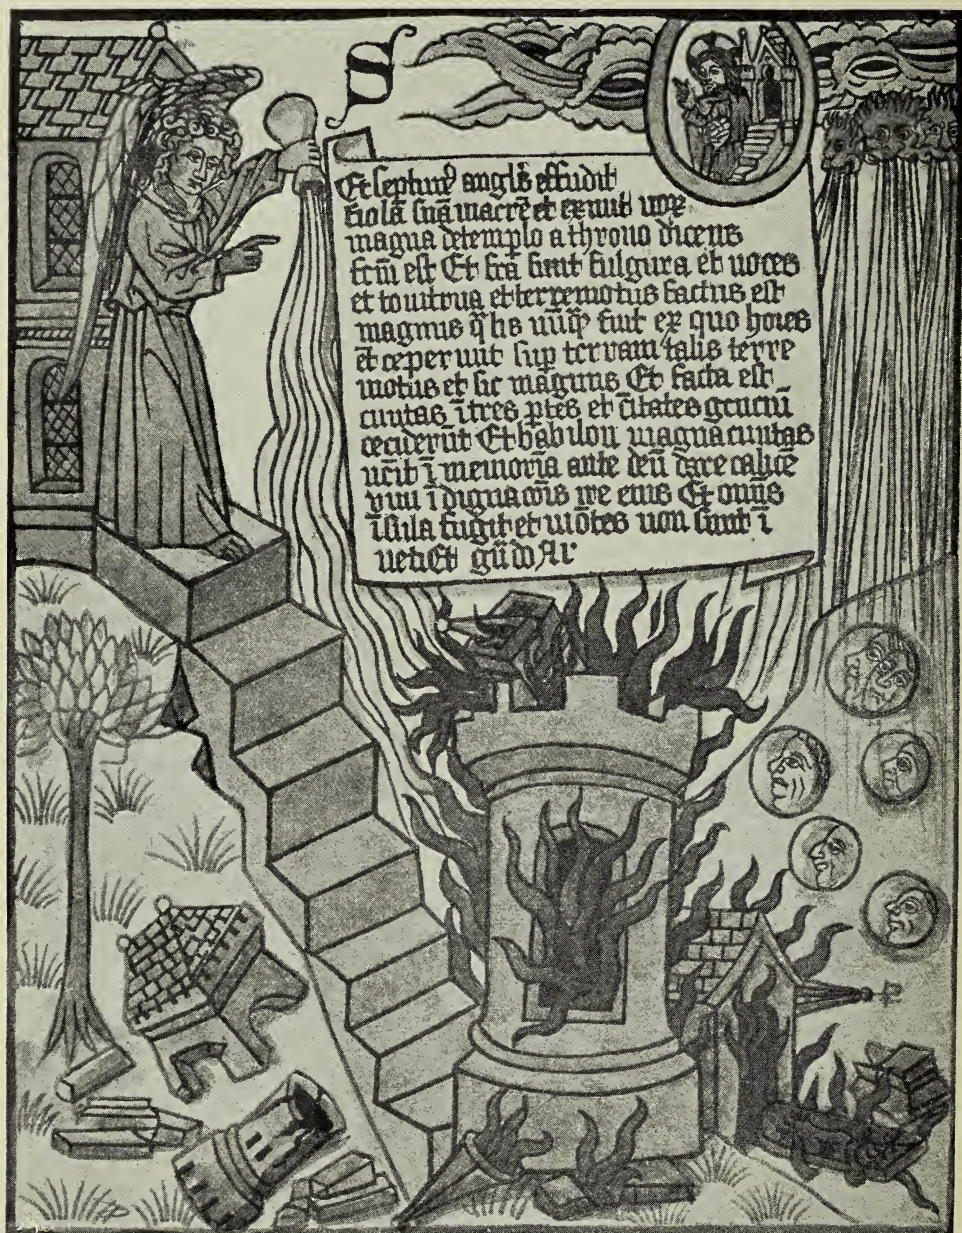 S
Et septim⁹ angl̄s effudit
fiolā suā in acrē et exiuit uox
magna de templo a throno dicens
fc̄m est Et fc̄a sunt fulgura et uoces
et tonitrua et terremotus factus est
magnus q̄lis nūq̄ fuit ex quo hoīes
et ceperunt sup terram talis terre
motus et sic magnus Et facta est
ciuitas ī tres ptes et ciūtates genciū
ceciderūt Et babilon magna ciuitas
uēit ī memoriā ante deū dare calicē
vini īdignacōīs ire eius Et omīs
īsula fugit et mōtes non sunt ī
uēti Et